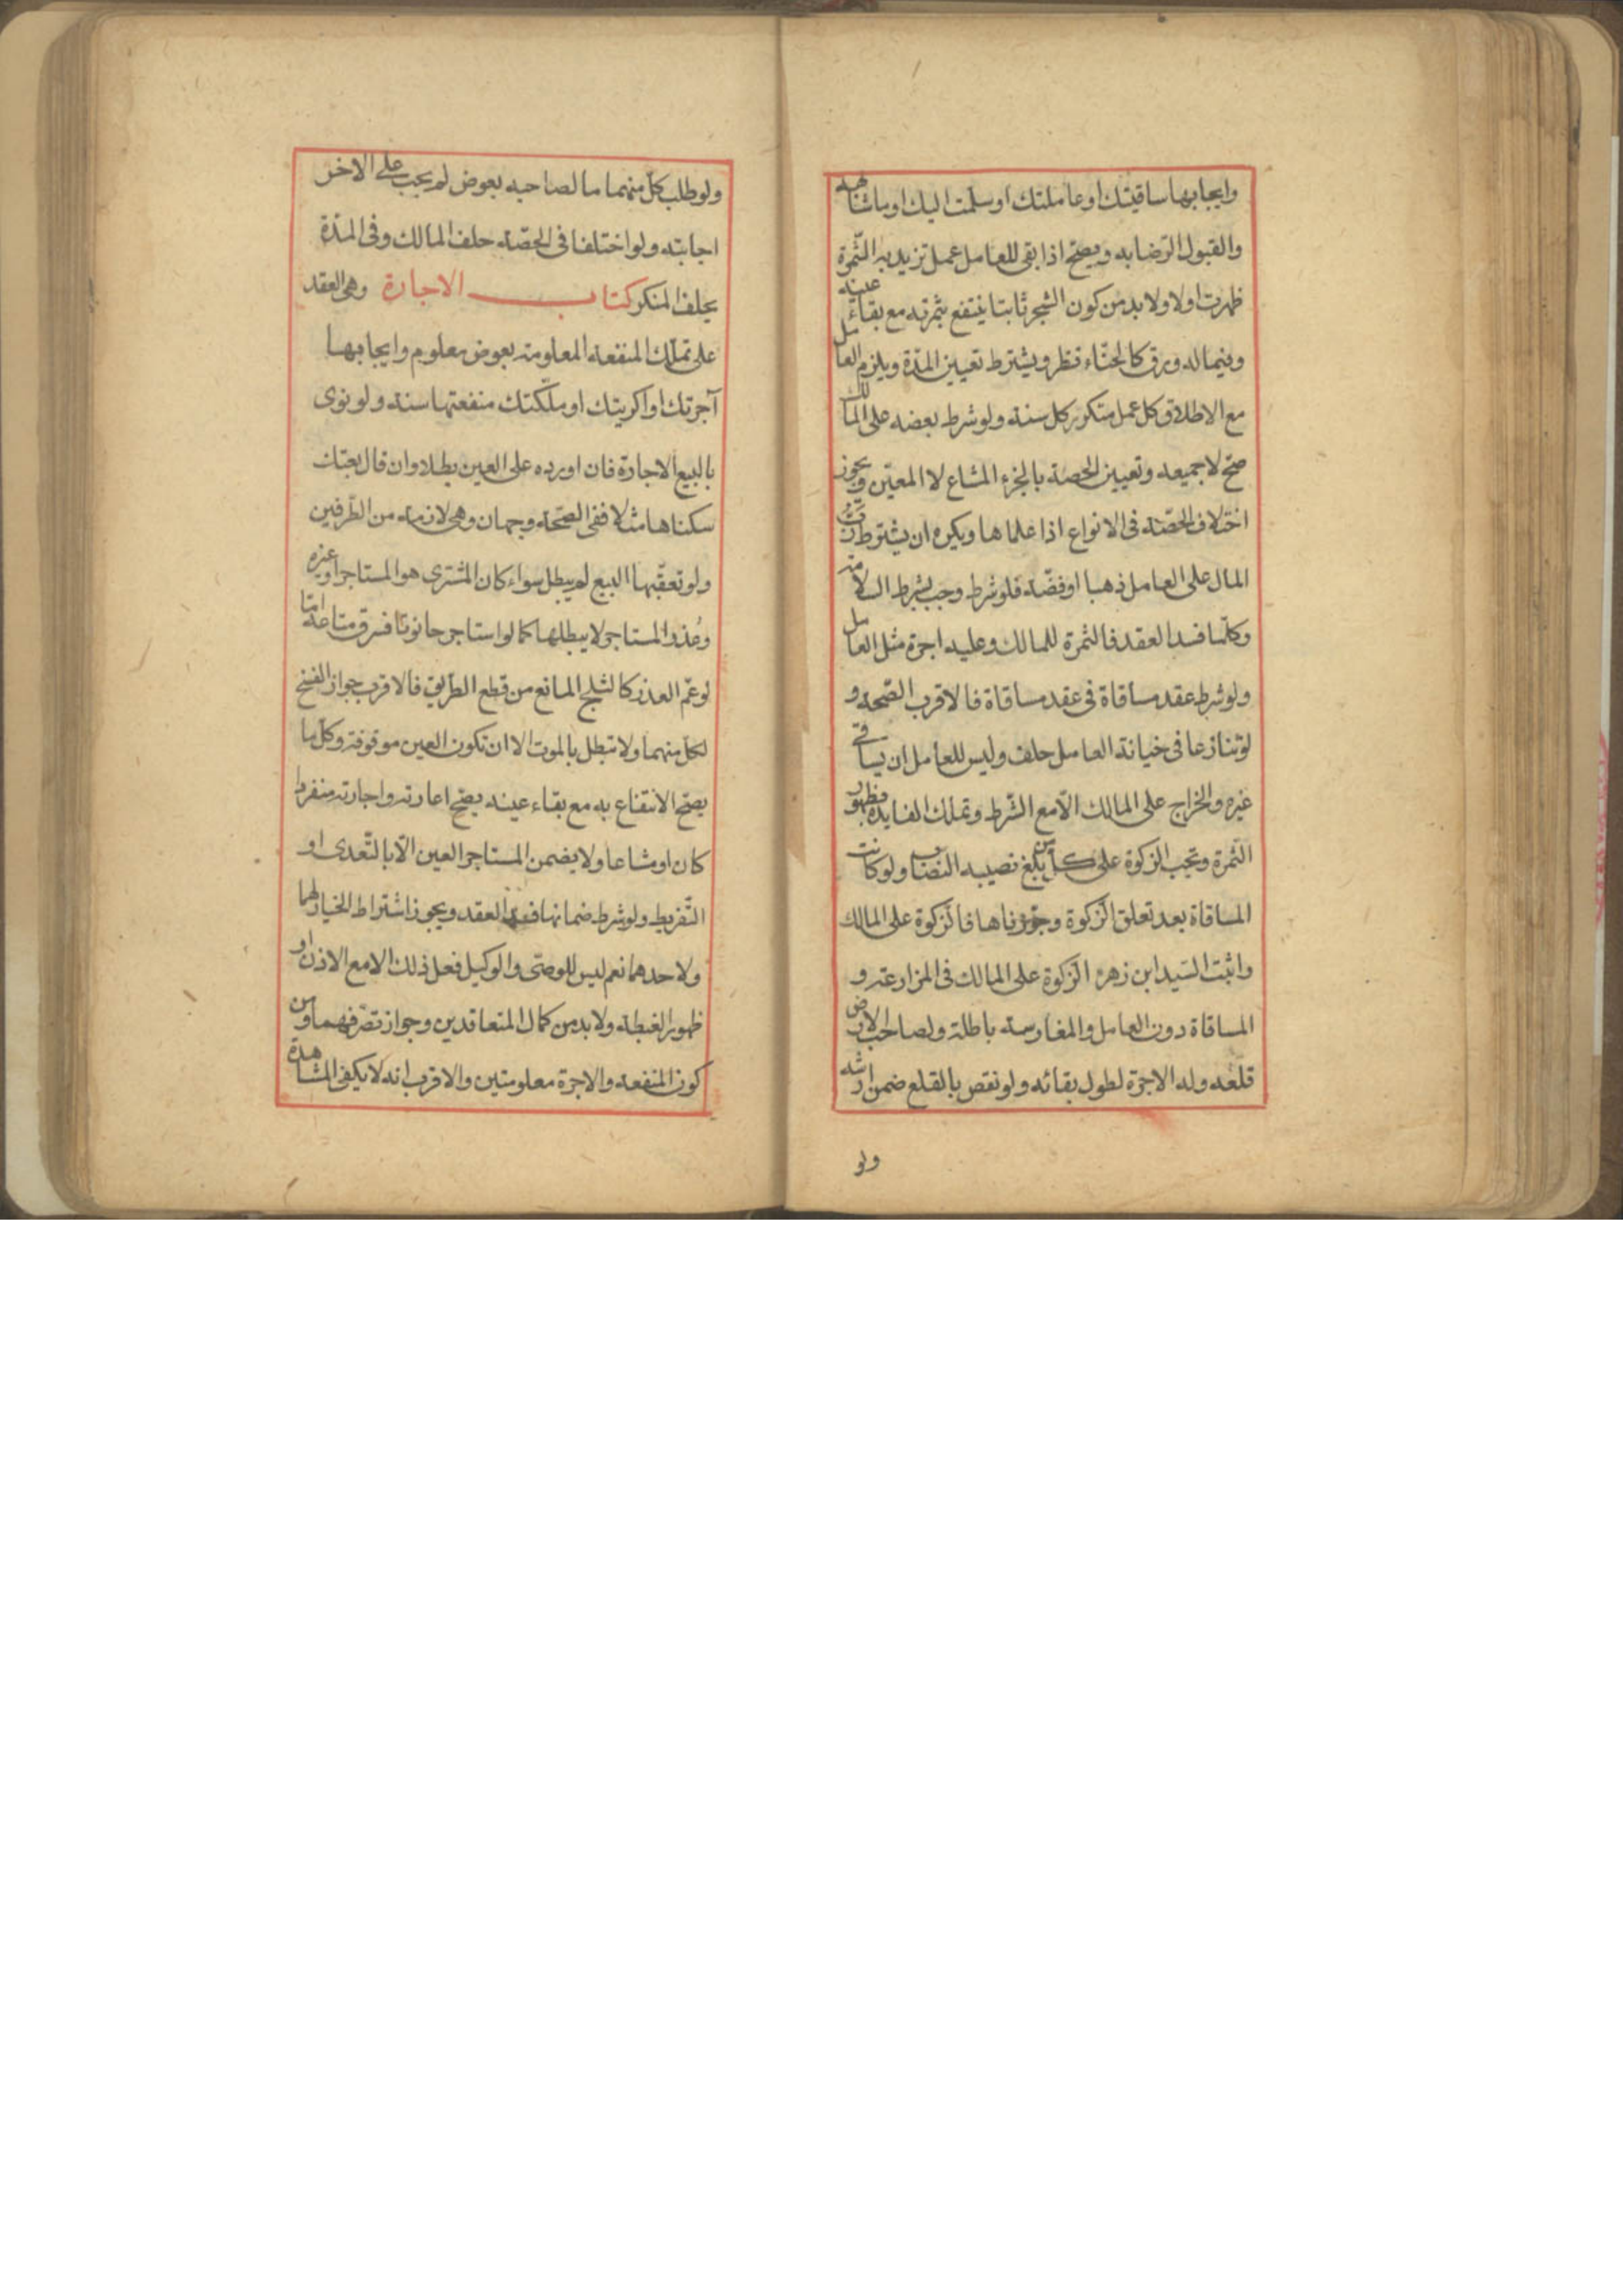 وايجابها ساقيتك او عاملتك او سلمت اليك او ما شابهه
والقبول الرّضا به ويصحّ اذا بقى للعامل عمل تزيد به الثّمرة
ظهرت اولا ولا بد من كون الشجر ثابتا ينتفع بثمرته مع بقاء عينه
وفيما له ورق كالحنّاء نظر ويشترط تعيين المدّة ويلزم العامل
مع الاطلاق كل عمل متكرر كل سنة ولو شرط بعضه على المالك
صحّ لا جميعه وتعيين الحصة بالجزء المشاع لا المعيّن ويجوز
اختلاف الحصّة فى الانواع اذا علماها ويكره ان يشترط ربّ
المال على العامل ذهبا او فضّة فلو شرط وجب بشرط السلامة
وكلّما فسد العقد فالثمرة للمالك وعليه اجرة مثل العامل
ولو شرط عقد مساقاة فى عقد مساقاة فالاقرب الصّحة و
لو تنازعا فى خيانة العامل حلف وليس للعامل ان يساقى
غيره والخراج على المالك الّا مع الشّرط وتملك الفايده بظهور
الثّمرة وتجب الزكوة على كل من بلغ نصيبه النصاب ولو كانت
المساقاة بعد تعلق الزّكوة وجوّزناها فالزّكوة على المالك
واثبت السّيد ابن زهره الزّكوة على المالك فى المزارعة و
المساقاة دون العامل والمغارسة باطلة ولصاحب الارض
قلعه وله الاجرة لطول بقائه ولو نقص بالقلع ضمن ارشه
ولو
ولو طلب كلّ منهما ما لصاحبه بعوض لم يجب على الاخر
اجابته ولو اختلفا فى الحصّة حلف المالك وفى المدّة
يحلف المنكر كتاب الاجارة وهى العقد
على تملّك المنفعة المعلومة بعوض معلوم وايجابها
آجرتك او اكريتك او ملّكتك منفعتها سنة ولو نوى
بالبيع الاجارة فان اورده على العين بطلا وان قال بعتك
سكناها مثلا ففى الصّحة وجهان وهى لازمة من الطّرفين
ولو تعقّبها البيع لم يبطل سواء كان المشترى هو المستاجر او غيره
وعذر المستاجر لا يبطلها كما لو استاجر حانوتا فسرق متاعه امّا
لو عمّ العذر كالثلج المانع من قطع الطّريق فالاقرب جواز الفسخ
لكل منهما ولا تبطل بالموت الا ان تكون العين موقوفة وكلّ ما
يصحّ الانتفاع به مع بقاء عينه يصحّ اعارته واجارته منفردا
كان او مشاعا ولا يضمن المستاجر العين الّا بالتّعدى او
التّفريط ولو شرط ضمانها فسد العقد ويجوز اشتراط الخيار لهما
ولاحدهما نعم ليس للوصىّ والوكيل فعل ذلك الا مع الاذن او
ظهور الغبطة ولا بد من كمال المتعاقدين وجواز تصرّفهما ومن
كون المنفعة والاجرة معلومتين والاقرب انه لا يكفى المشاهدة